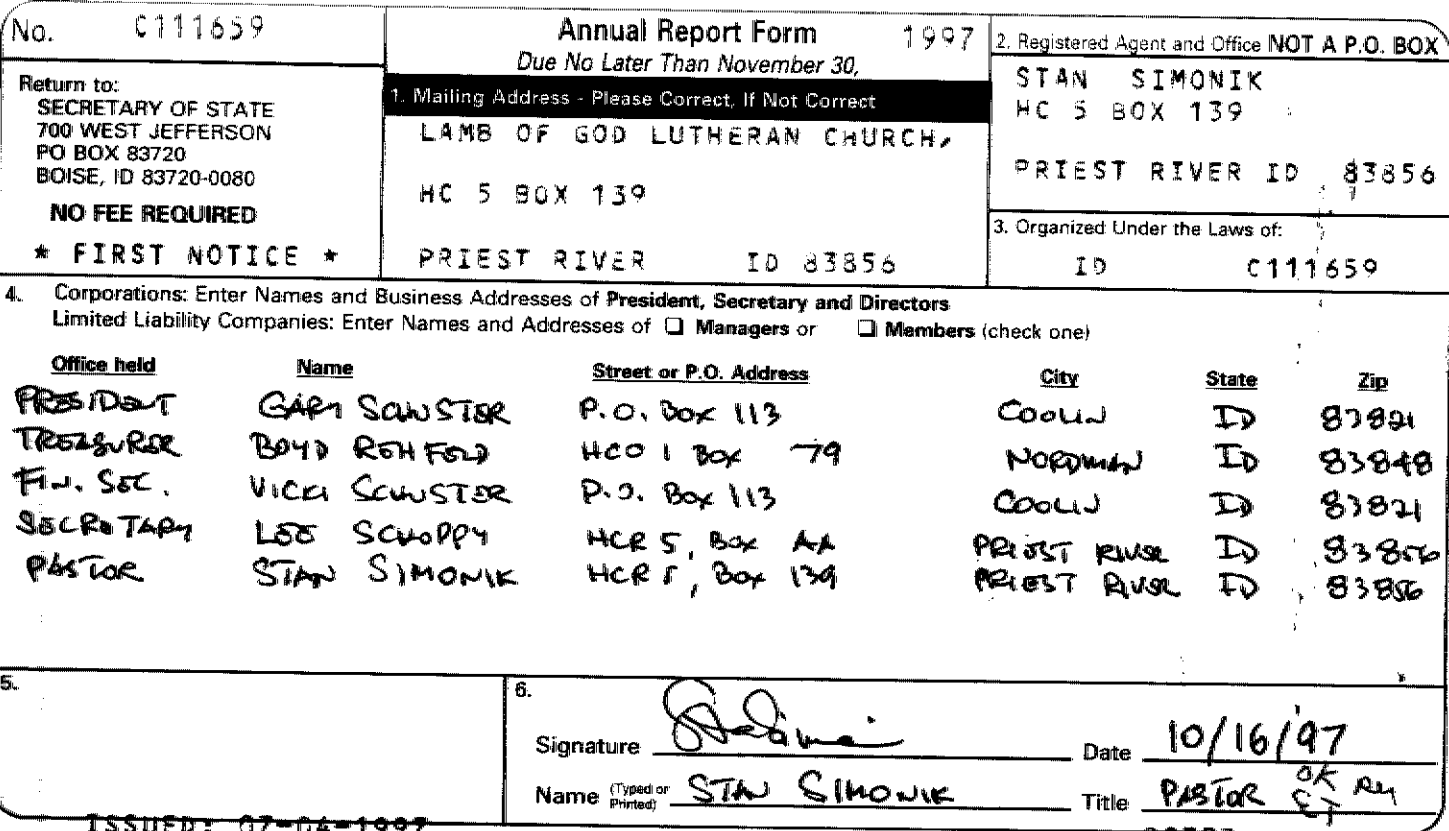 No. C111659
Annual Report Form 1997
Due No Later Than November 30,
Return to:
SECRETARY OF STATE
700 WEST JEFFERSON
PO BOX 83720
BOISE, ID 83720-0080
NO FEE REQUIRED
* FIRST NOTICE *
1. Mailing Address - Please Correct, If Not Correct
LAMB OF GOD LUTHERAN CHURCH,
HC 5 BOX 139
PRIEST RIVER ID 83856
2. Registered Agent and Office NOT A P.O. BOX
STAN SIMONIK
HC 5 BOX 139
PRIEST RIVER ID 83856
3. Organized Under the Laws of:
ID C111659
4. Corporations: Enter Names and Business Addresses of President, Secretary and Directors
Limited Liability Companies: Enter Names and Addresses of ❑ Managers or ❑ Members (check one)
Office held Name Street or P.O. Address City State Zip
PRESIDENT GARY SCHUSTER P.O. Box 113 COOLIN ID 83821
TREASURER BOYD REHFELD HCO 1 Box 79 NORDMAN ID 83848
FIN. SEC. VICKI SCHUSTER P.O. Box 113 COOLIN ID 83821
SECRETARY LEE SCHOPPY HCR 5, Box AA PRIEST RIVER ID 83856
PASTOR STAN SIMONIK HCR 5, Box 139 PRIEST RIVER ID 83856
5.
6.
Signature Date 10/16/97
Name (Typed or Printed) STAN SIMONIK Title PASTOR OK
ISSUED: 07-04-1997